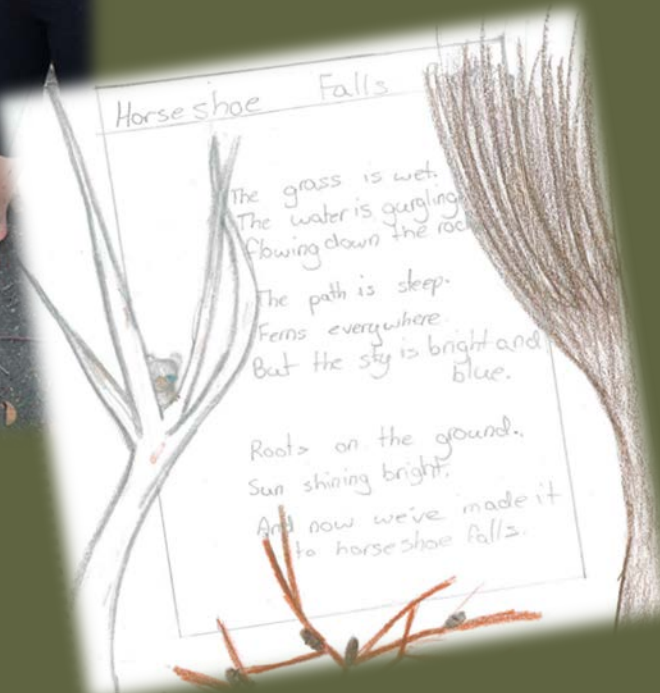 Horseshoe Falls
The grass is wet.
The water is gurgling
flowing down the rock
The path is steep.
Ferns everywhere
But the sky is bright and
blue.
Roots on the ground.
Sun shining bright.
And now we've made it
to horseshoe falls.